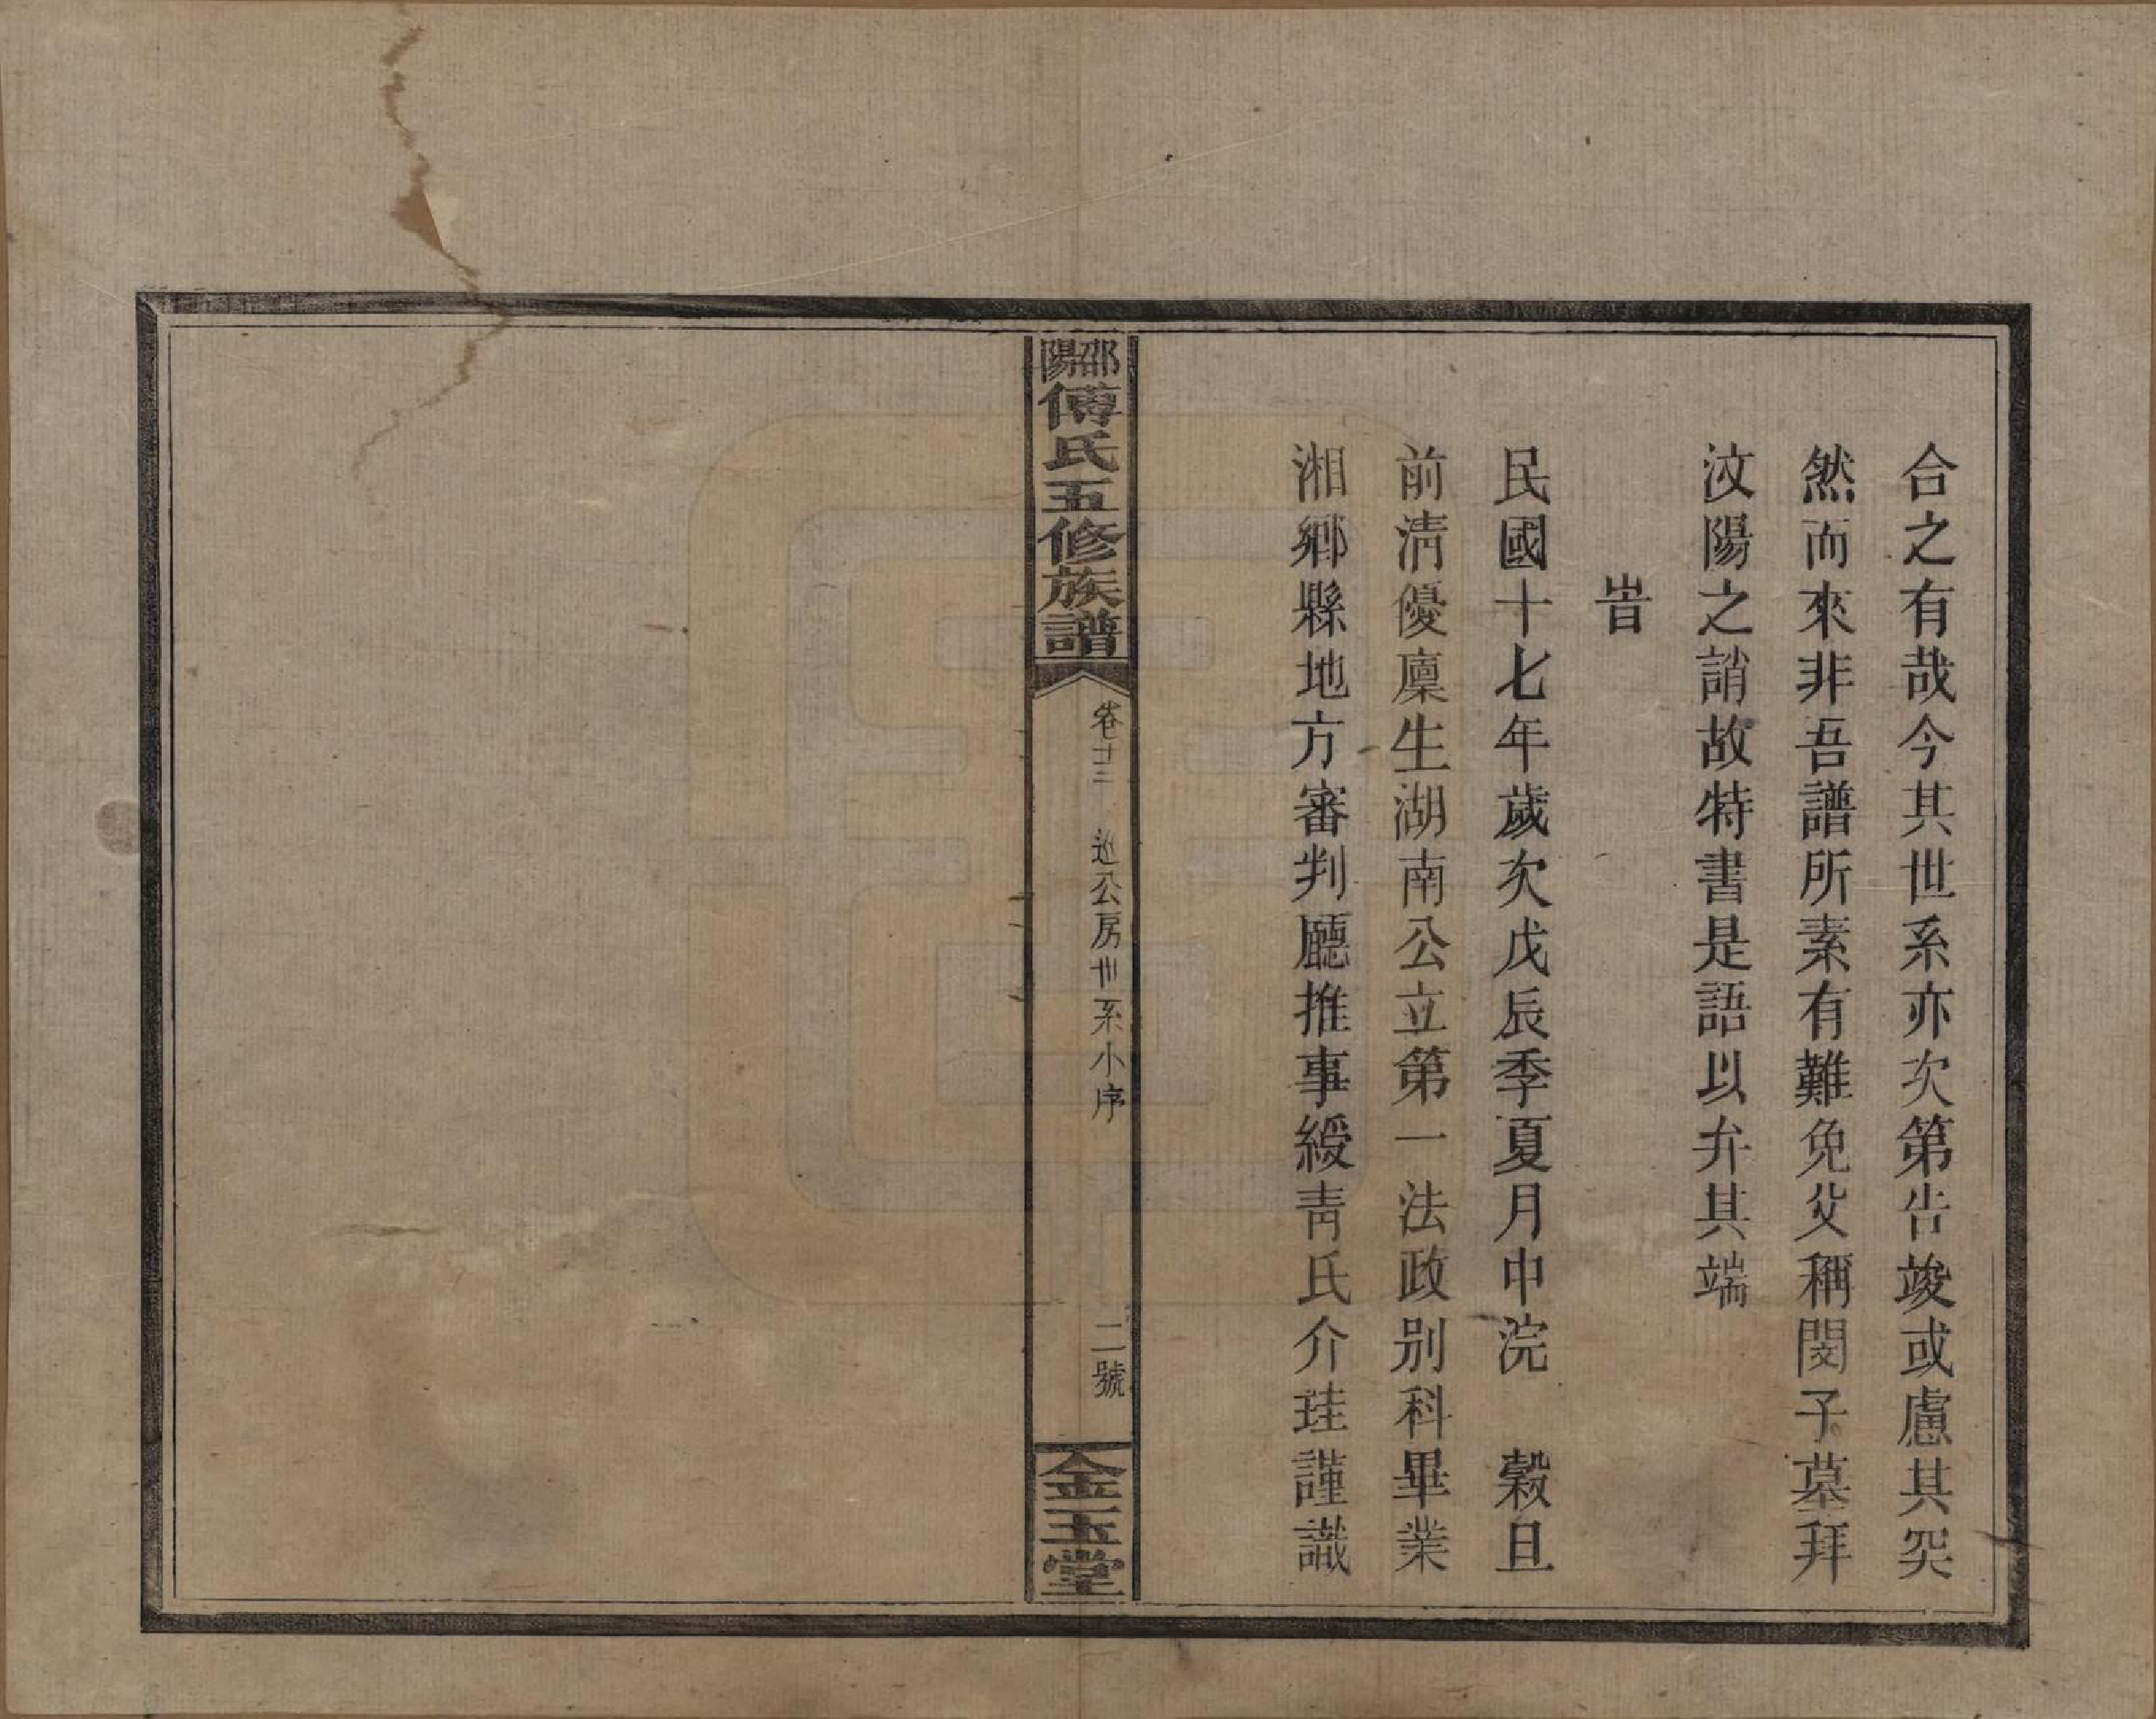 合之有哉今其世系亦次第告竣或慮其突
然而來非吾譜所素有難免父稱閔子墓拜
汶陽之誚故特書是語以弁其端
旹
民國十七年歲次戊辰季夏月中浣　穀旦
前清優廩生湖南公立第一法政别科畢業
湘鄉縣地方審判廳推事綬青氏介珪謹識
邵陽傅氏五修族譜
卷廿三　公房世系小序
二號
金玉堂